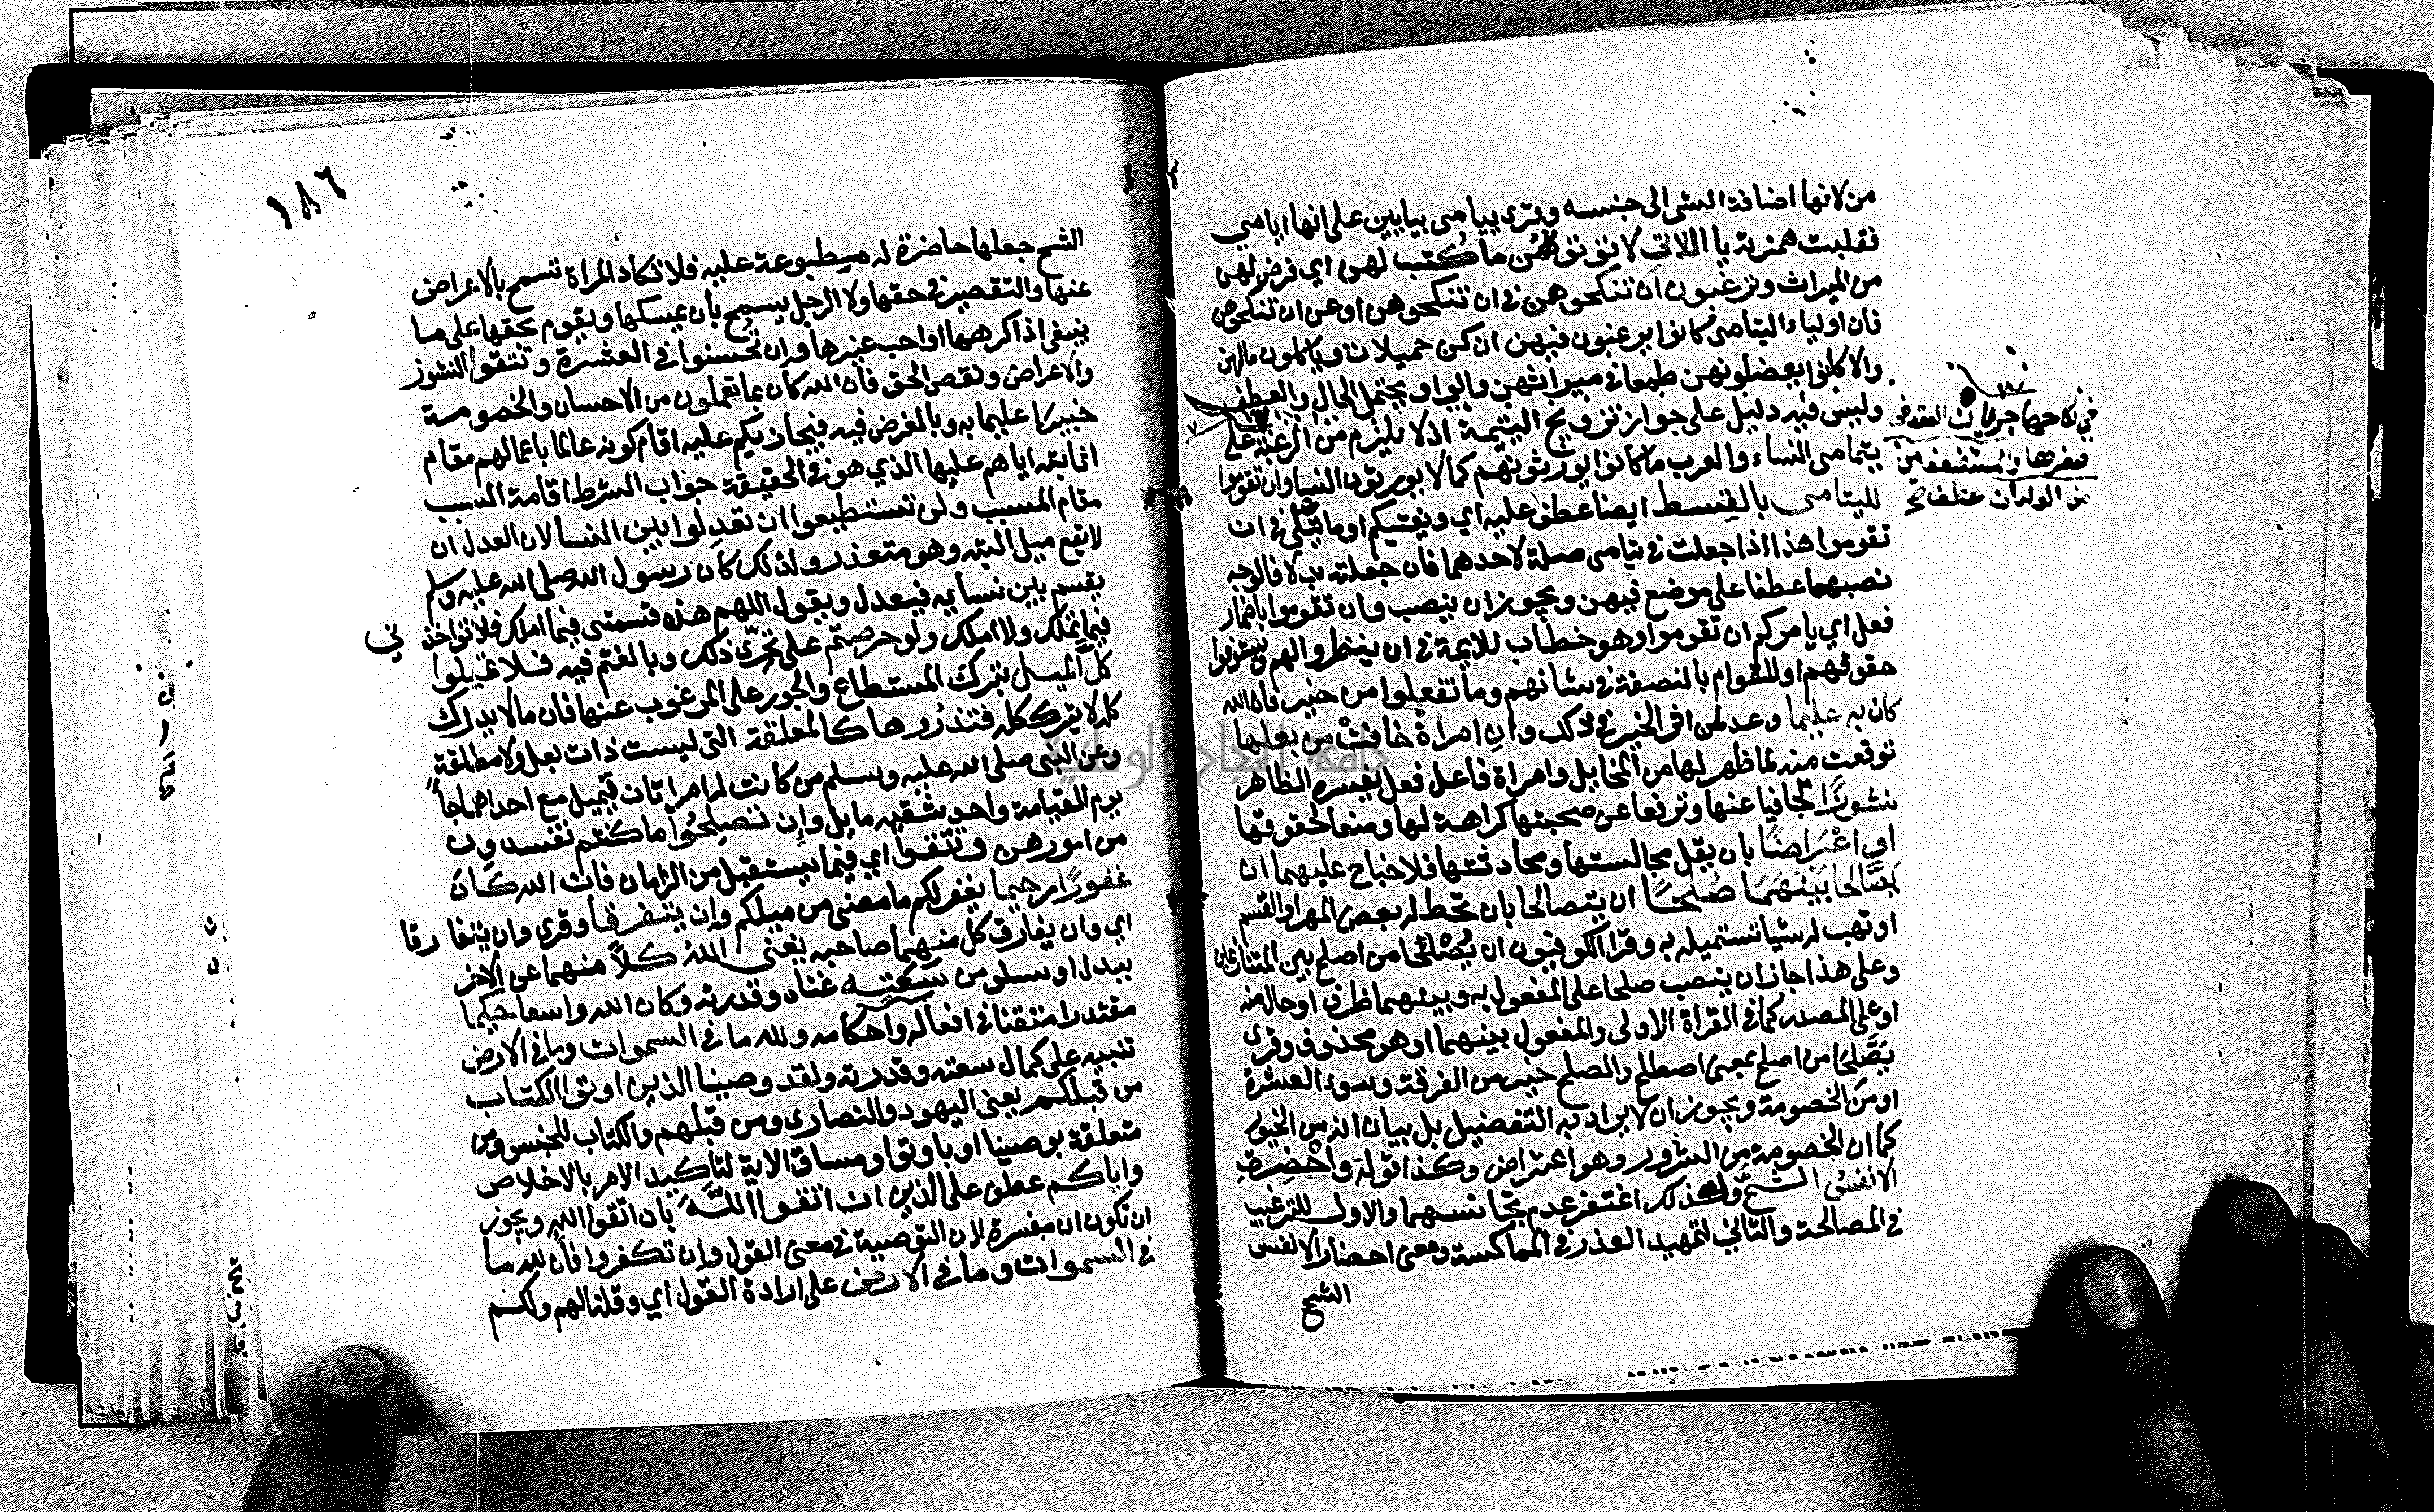 من لانها اضافة الشي الى جنسه وقري ييامى بيايين على انها ايامى
فقلبت همزته يا اللاتي لا تؤتونهن ما كتب لهن اي فرض لهن
من الميراث وترغبون ان تنكحوهن في ان تنكحوهن او عن ان تنكحوهن
فان اولياء اليتامى كانوا يرغبون فيهن ان كن جميلات وياكلون مالهن
والا كانوا يعضلونهن طمعا في ميراثهن والواو يحتمل الحال والعطف
وليس فيه دليل على جواز تزويج اليتيمة اذ لا يلزم من الرغبة على
في نكاحها جريان العقد في
صغرها والمستضعفين
من الولدان عطف
يتامى النساء والعرب ما كانوا يورثونهم كما لا يورثون النسا وان تقوموا
لليتامى بالقسط ايضا عطف عليه اي ويفتيكم او ما يتلى في ان
تقوموا هذا اذا جعلت في يتامى صلة لاحدهما فان جعلته بدلا فالوجه
نصبهما عطفا على موضع فيهن ويجوز ان ينصب وان تقوموا باضمار
فعل اي يامركم ان تقوموا وهو خطاب للايمة في ان ينظروا لهم ويستوفوا
حقوقهم او للقوام بالنصفة في شانهم وما تفعلوا من خير فان الله
كان به عليما وعد لمن اثر الخير في ذلك وان امراة خافت من بعلها
توقعت منه لما ظهر لها من المخايل وامراة فاعل فعل يفسره الظاهر
نشوزا تجافيا عنها وترفعا عن صحبتها كراهة لها ومنعا لحقوقها
او اعراضا بان يقل مجالستها ومحادثتها فلا جناح عليهما ان
يصالحا بينهما صلحا ان يتصالحا بان تحط له بعض المهر او القسم
او تهب له شيا تستميله به وقرا الكوفيون ان يصلحا من اصلح بين المتنازعين
وعلى هذا جاز ان ينصب صلحا على المفعول به وبينهما ظرف او حال منه
او على المصدر كما في القراة الاولى والمفعول بينهما او هو محذوف وقرى
يصلحا من اصلح بمعنى اصطلح والصلح خير من الفرقة وسوء العشرة
او من الخصومة ويجوز ان لا يراد به التفضيل بل بيان انه من الخيور
كما ان الخصومة من الشرور وهو اعتراض وكذا قوله واحضرت
الانفس الشح ولذلك اغتفر عدم تجانسهما والاول للترغيب
في المصالحة والثاني لتمهيد العذر في المماكسة ومعنى احضار الانفس
الشح
١٨٦
الشح جعلها حاضرة له مطبوعة عليه فلا تكاد المراة تسمح بالاعراض
عنها والتقصير في حقها ولا الرجل يسمح بأن يمسكها ويقوم بحقها على ما
ينبغي اذا كرهها او احب غيرها وان تحسنوا في العشرة وتتقوا النشوز
والاعراض ونقص الحق فان الله كان بما تعملون من الاحسان والخصومة
خبيرا عليما به وبالغرض فيه فيجازيكم عليه اقام كونه عالما باعمالهم مقام
اثابته اياهم عليها الذي هو في الحقيقة جواب الشرط اقامة السبب
مقام المسبب ولن تستطيعوا ان تعدلوا بين النسا لان العدل ان
لا يقع ميل البته وهو متعذر ولذلك كان رسول الله صلى الله عليه وسلم
يقسم بين نسايه فيعدل ويقول اللهم هذه قسمتي فيما املك فلا تؤاخذني
فيما تملك ولا املك ولو حرصتم على تحري ذلك وبالغتم فيه فلا تميلوا
كل الميل بترك المستطاع والجور على المرغوب عنها فان ما لا يدرك
كله لا يترك كله فتذروها كالمعلقة التي ليست ذات بعل ولا مطلقة
وعن النبي صلى الله عليه وسلم من كانت له امراتان فيميل مع احداهما جاء
يوم القيامة واحد شقيه مايل وان تصلحوا ما كنتم تفسدون
من امورهن وتتقوا اي فيما يستقبل من الزمان فان الله كان
غفورا رحيما يغفر لكم ما مضى من ميلكم وان يتفرقا وقري وان يتفارقا
اي وان يفارق كل منهما صاحبه يغني الله كلا منهما عن الاخر
ببدل او سلو من سعته غناه وقدرته وكان الله واسعا حكيما
مقتدرا متقنا في افعاله واحكامه ولله ما في السموات وما في الارض
تنبيه على كمال سعته وقدرته ولقد وصينا الذين اوتوا الكتاب
من قبلكم يعني اليهود والنصارى ومن قبلهم والكتاب للجنس ومن
متعلقة بوصينا او باوتوا ومساق الاية لتاكيد الامر بالاخلاص
واياكم عطف على الذين ان اتقوا الله بان اتقوا الله ويجوز
ان تكون ان مفسرة لان التوصية في معنى القول وان تكفروا فان لله ما
في السموات وما في الارض على ارادة القول اي وقلنا لهم ولكم